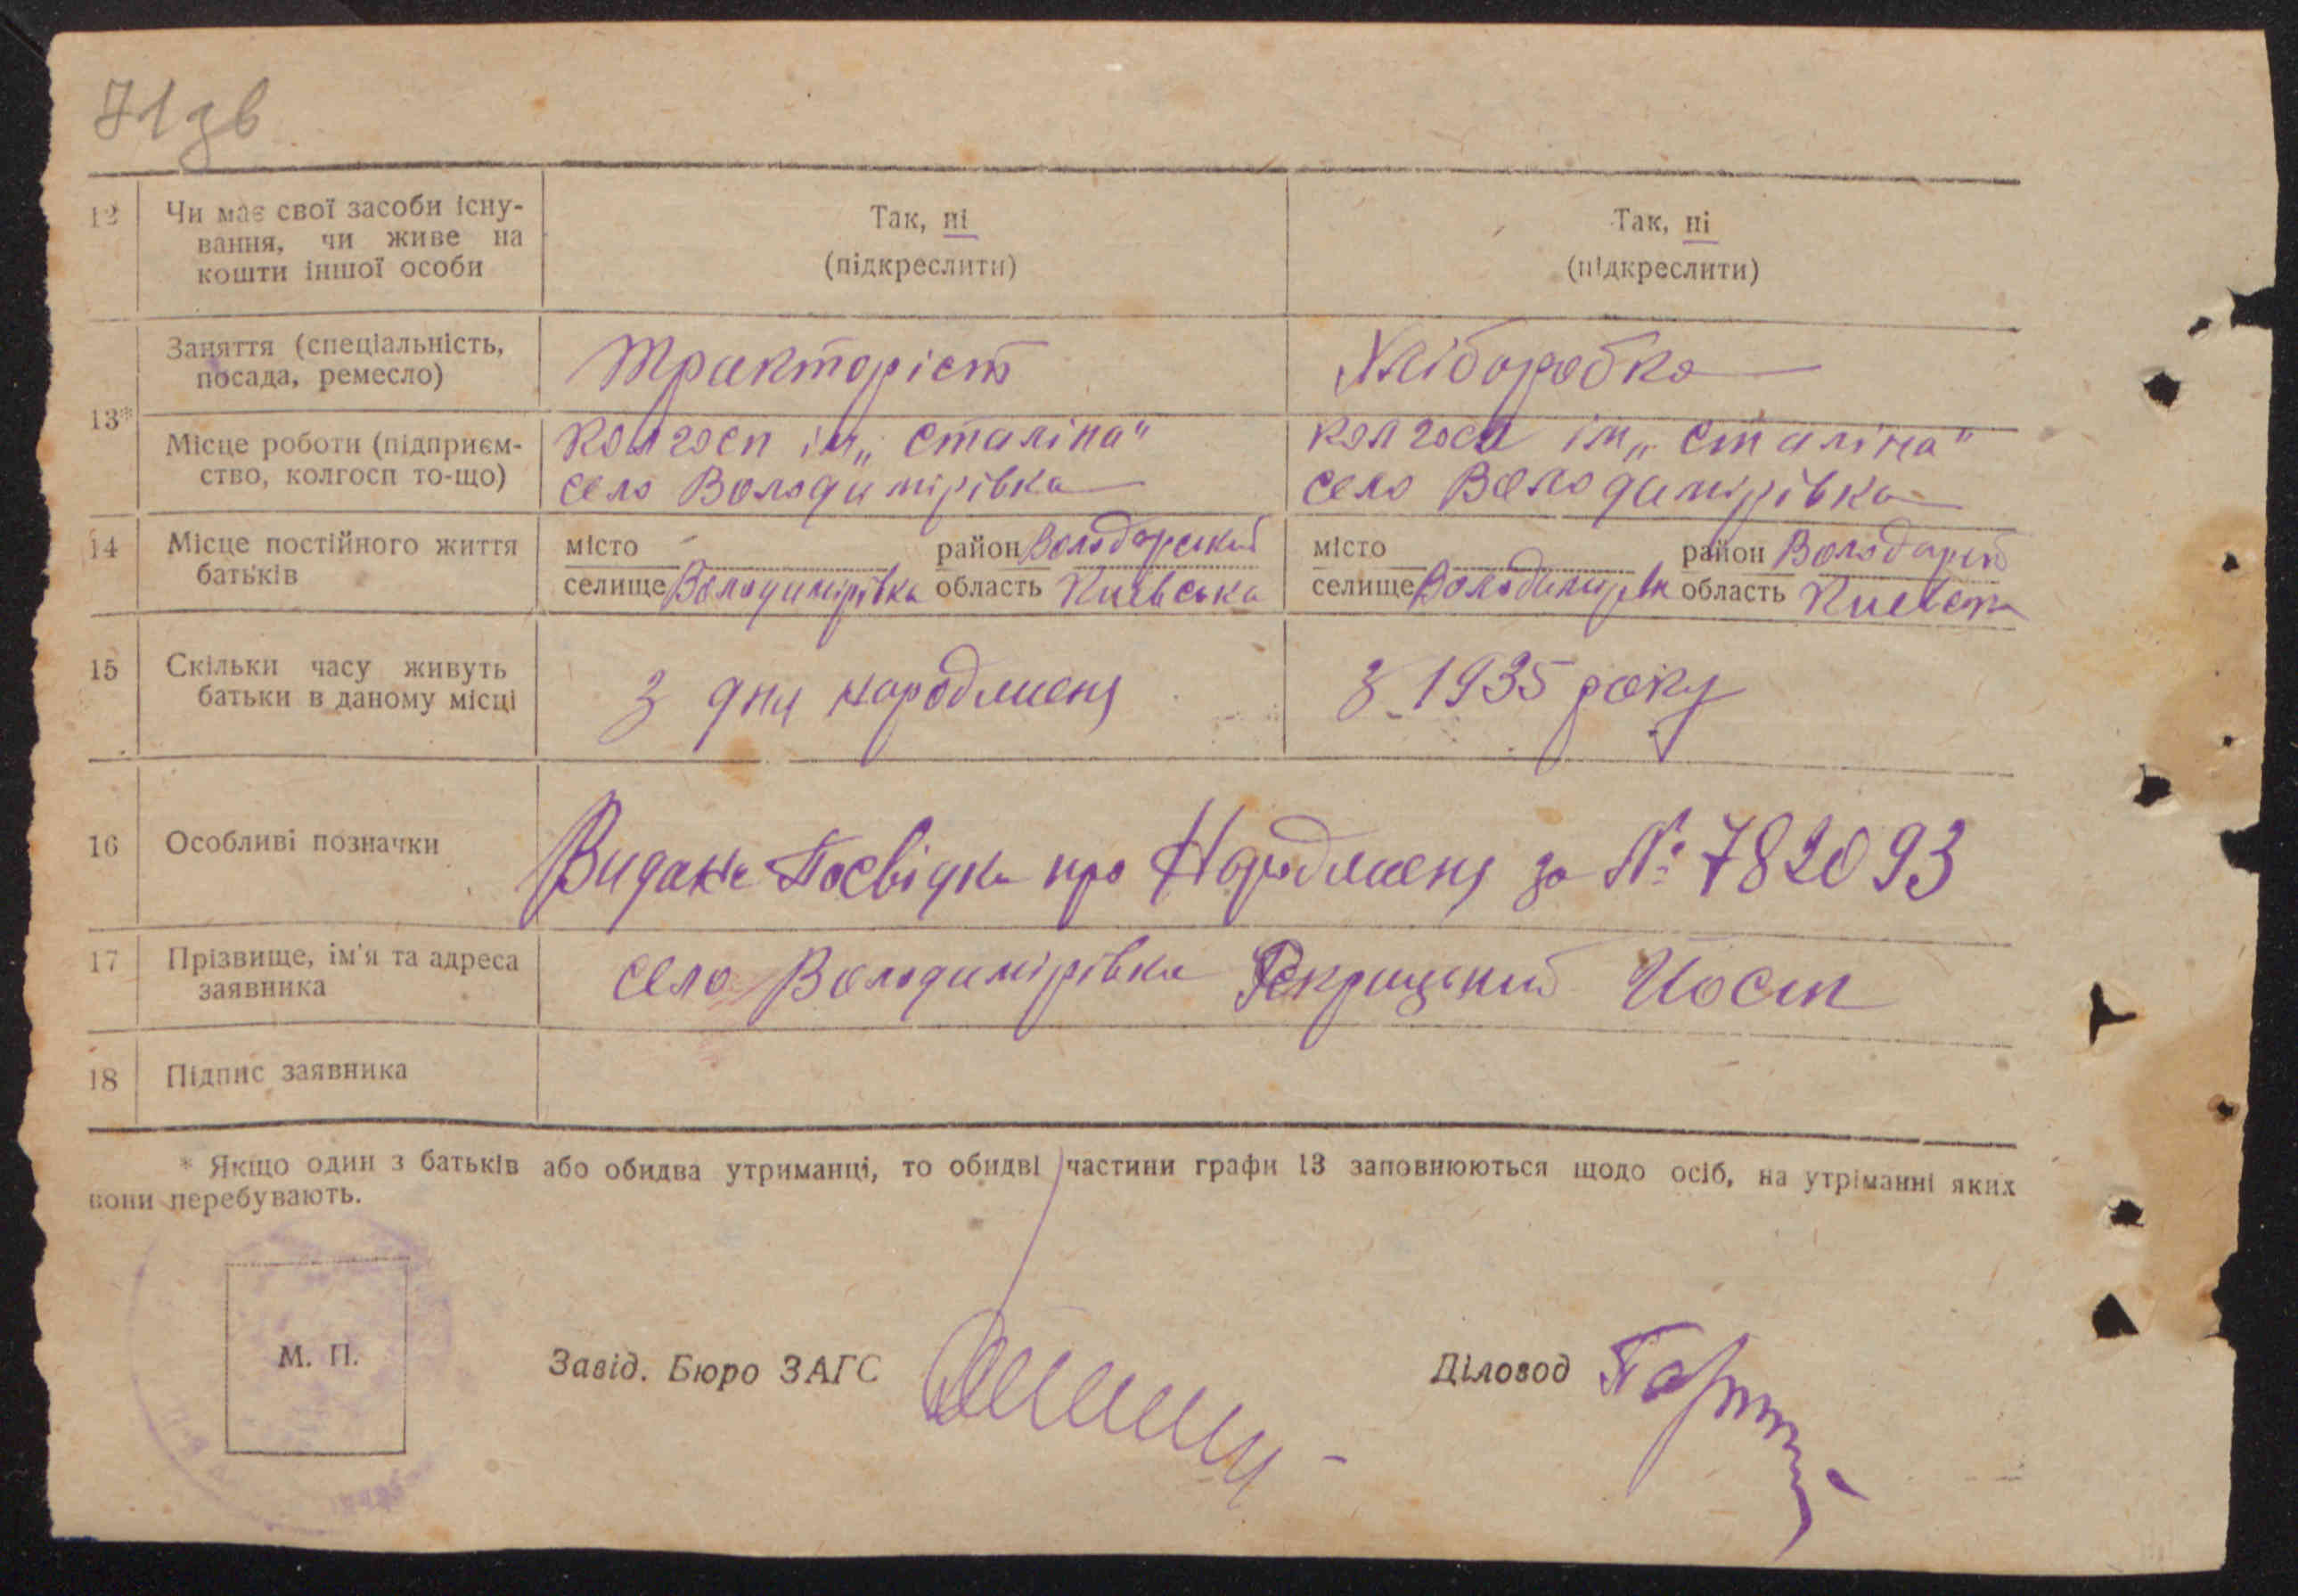 71зв
12 Чи має свої засоби існу-
вання, чи живе на
кошти іншої особи
Так, ні
(підкреслити)
Так, ні
(підкреслити)
13*
Заняття (спеціальність,
посада, ремесло)
Тракторіст
Хліборобка
Місце роботи (підприєм-
ство, колгосп то-що)
Колгосп ім „Сталіна"
село Володимірівка
колгосп ім „Сталіна"
село Володимірівка
14 Місце постійного життя
батьків
місто район Володарський
селище Володимірівка область Київська
місто район
селище область
15 Скільки часу живуть
батьки в даному місці
З дня народженя
З 1935 року
16 Особливі позначки
Видане Посвідка про Народженя за № 782093
17 Прізвище, ім'я та адреса
заявника
село Володимірівка Йосип
18 Підпис заявника
* Якщо один з батьків або обидва утриманці, то обидві частини графи 13 заповнюються щодо осіб, на утріманні яких
вони перебувають.
М. П.
Завід. Бюро ЗАГС
Діловод